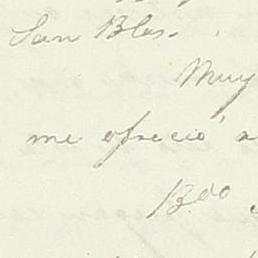 San Blas.
Muy
me ofreció
B.do